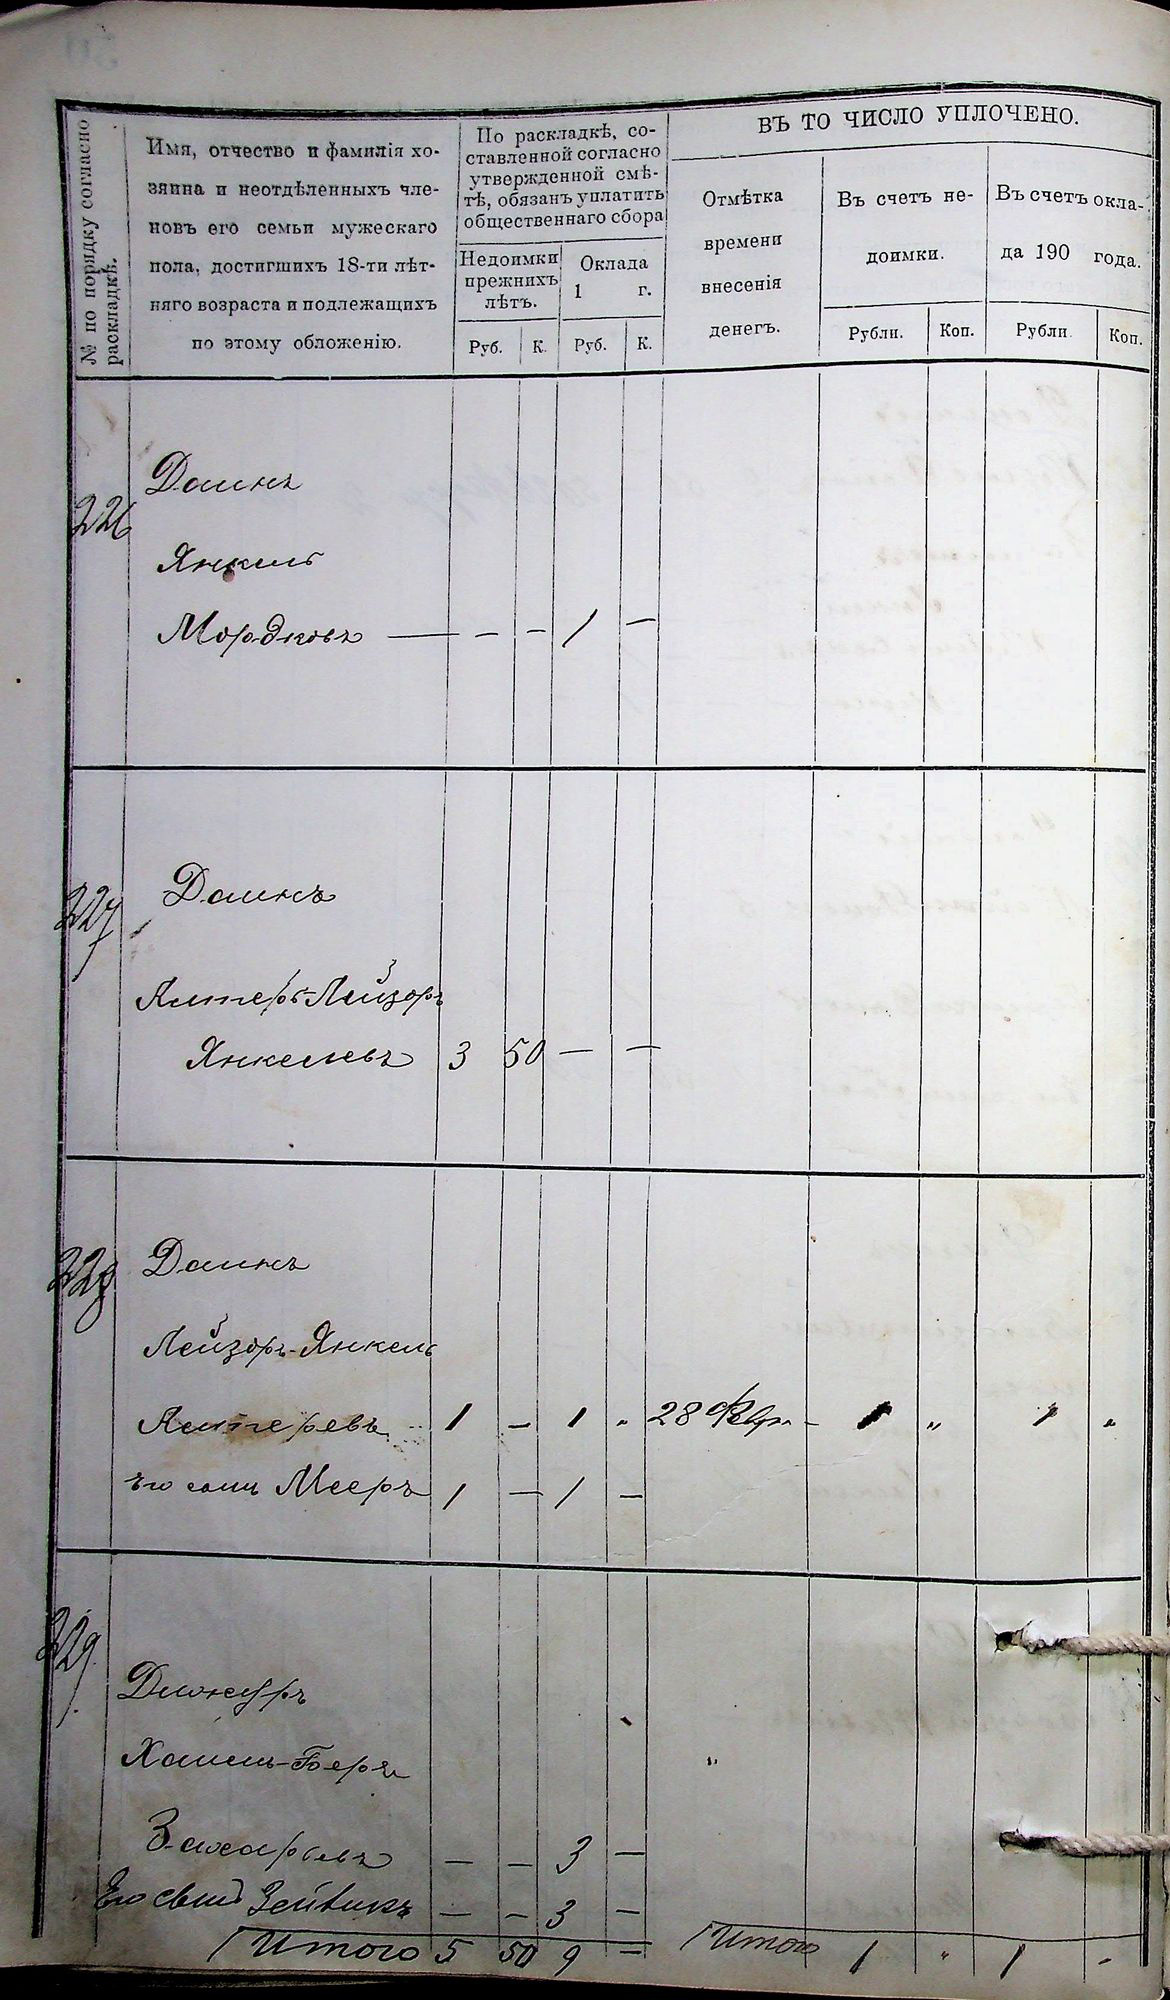 № по порядку согласно раскладкѣ.
Имя, отчество и фамилія хо-
зяина и неотдѣленныхъ чле-
новъ его семьи мужескаго
пола, достигшихъ 18-ти лѣт-
няго возраста и подлежащихъ
по этому обложенію.
По раскладкѣ, со-
ставленной согласно
утвержденной смѣ-
тѣ, обязанъ уплатить
общественнаго сбора
Недоимки
прежнихъ
лѣтъ.
Оклада
1 г.
Руб. К. Руб. К.
ВЪ ТО ЧИСЛО УПЛОЧЕНО.
Отмѣтка
времени
внесенія
денегъ.
Въ счетъ не-
доимки.
Въ счетъ окла-
да 190 года.
Рубли. Коп. Рубли Коп.
226
Даинъ
Янкель
Мордковъ — — — 1 —
227
Даинъ
Алтеръ-Лейзоръ
Янкелевъ 3 50 — —
228
Даинъ
Лейзоръ-Янкель
Алтеревъ 1 — 1 " 28 1 " 1 "
его сынъ Мееръ 1 — 1 —
229
Хаимъ-Беръ
Захарьевъ — — 3 —
Его сынъ — — 3 —
Итого 5 50 9 — Итого 1 " 1 -